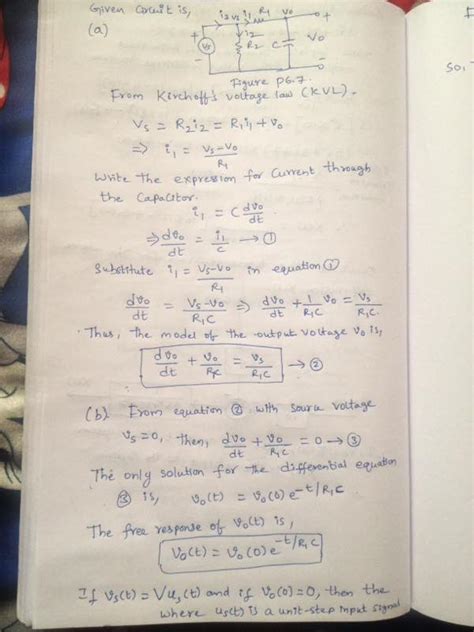 Given Circuit is,
(a)
i₃ v₂ i₁ R₁ v₀ +
+ Vs i₂ R₂ C V₀
- -
Figure P6.7.
So,
From Kirchoff's voltage law (KVL).
Vs = R₂i₂ = R₁i₁ + v₀
⇒ i₁ = (Vs-V₀)/R₁
Write the expression for Current through
the Capacitor.
i₁ = C dv₀/dt
⇒ dv₀/dt = i₁/C → ①
Substitute i₁ = (Vs-V₀)/R₁ in equation ①
dv₀/dt = (Vs-V₀)/R₁C ⇒ dv₀/dt + 1/R₁C v₀ = Vs/R₁C.
Thus, the model of the output voltage v₀ is,
dv₀/dt + v₀/R₁C = Vs/R₁C → ②
(b). From equation ② with source voltage
Vs = 0, then, dv₀/dt + v₀/R₁C = 0 → ③
The only solution for the differential equation
③ is, v₀(t) = v₀(0) e^(-t/R₁C)
The free response of V₀(t) is,
V₀(t) = v₀(0) e^(-t/R₁C)
If Vs(t) = V us(t) and if V₀(0) = 0, then the
where us(t) is a unit-step input signal